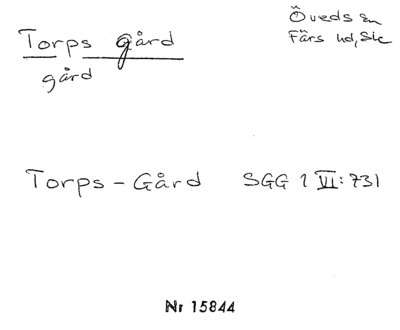 Torps gård
gård
Öveds sn
Färs hd, Sk
Torps-Gård SGG 1 VI: 731
Nr 15844